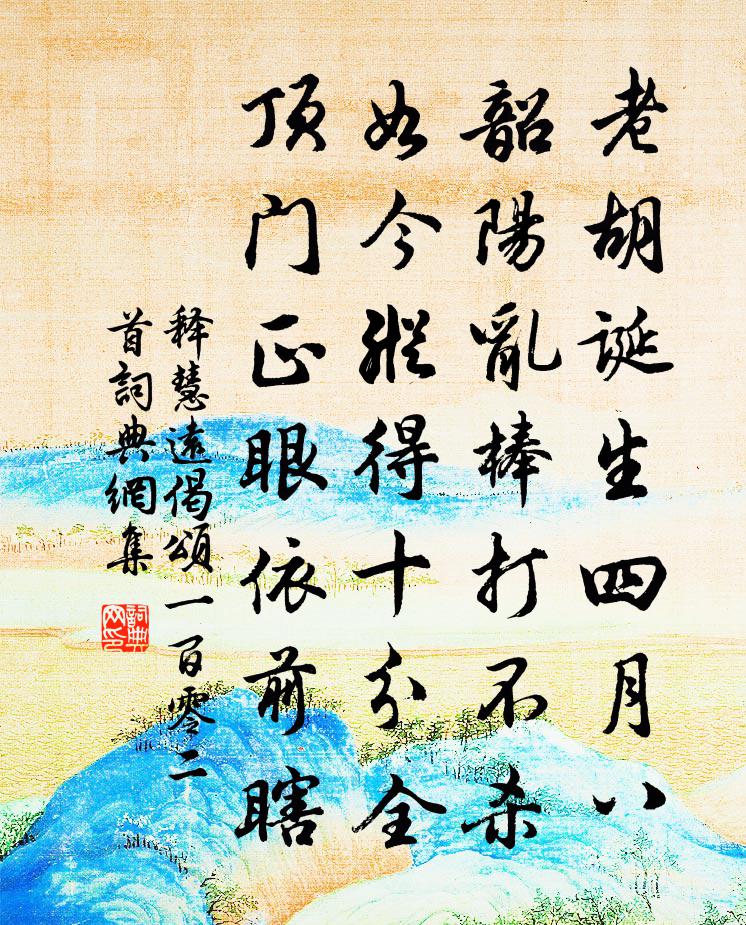 老胡誕生四月八
韶陽亂棒打不杀
如今縱得十分全
頂门正眼依前瞎
释慧遠偈頌一百零二
首詞典網集
詞典
网印